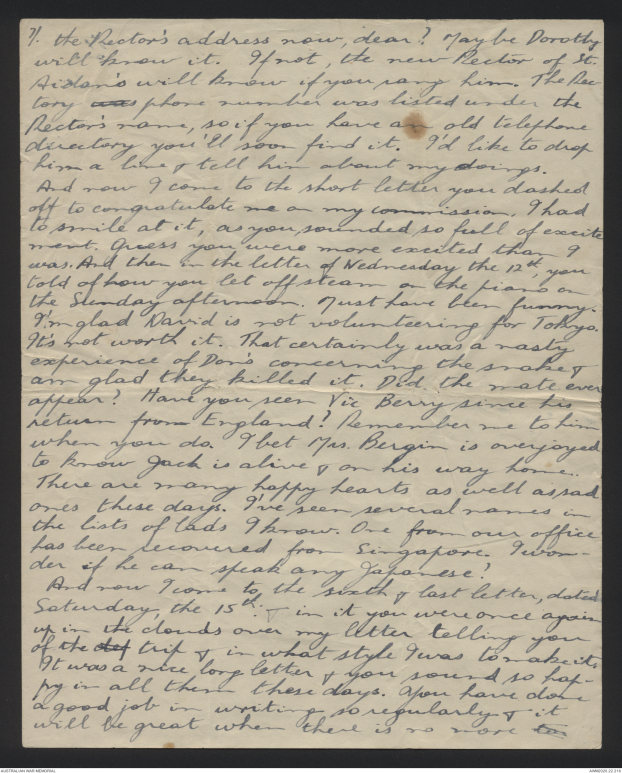 7/. the Rector's address now, dear? Maybe Dorothy
will know it. If not, the new Rector of St.
Aidan's will know if you rang him. The Rec-
tory was phone number was listed under the
Rector's name, so if you have an old telephone
directory you'll soon find it. I'd like to drop
him a line & tell him about my doings.
And now I come to the short letter you dashed
off to congratulate me on my commission. I had
to smile at it, as you sounded so full of excite
ment. Guess you were more excited than I
was. And then in the letter of Wednesday the 12th, you
told of how you let off steam on the piano on
the Sunday afternoon. Must have been funny.
I'm glad David is not volunteering for Tokyo.
It's not worth it. That certainly was a nasty
experience of Don's concerning the snake &
am glad they killed it. Did the mate ever
appear? Have you seen Vic Berry since his
return from England? Remember me to him
when you do. I bet Mrs. Bergin is overjoyed
to know Jack is alive & on his way home.
There are many happy hearts as well as sad
ones these days. I've seen several names in
the lists of lads I know. One from our office
has been recovered from Singapore. I won-
der if he can speak any Japanese!
And now I come to the sixth & last letter, dated
Saturday, the 15th. & in it you were once again
up in the clouds over my letter telling you
of the trip & in what style I was to make it.
It was a nice long letter & you sound so hap-
py in all them these days. You have done
a good job in writing so regularly & it
will be great when there is no more to
AUSTRALIAN WAR MEMORIAL